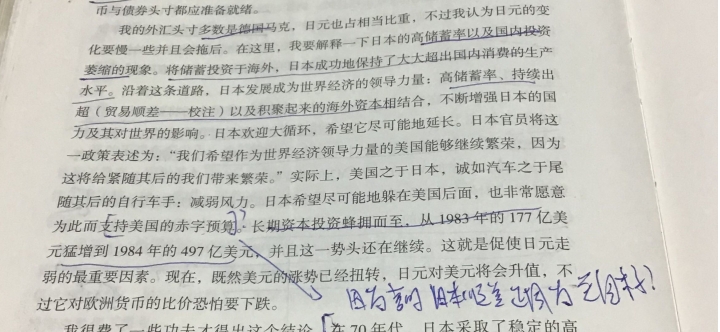 币与债券头寸都应准备就绪。
我的外汇头寸多数是德国马克，日元也占相当比重，不过我认为日元的变
化要慢一些并且会拖后。在这里，我要解释一下日本的高储蓄率以及国内投资
萎缩的现象。将储蓄投资于海外，日本成功地保持了大大超出国内消费的生产
水平。沿着这条道路，日本发展成为世界经济的领导力量：高储蓄率、持续出
超（贸易顺差——校注）以及积聚起来的海外资本相结合，不断增强日本的国
力及其对世界的影响。日本欢迎大循环，希望它尽可能地延长。日本官员将这
一政策表述为：“我们希望作为世界经济领导力量的美国能够继续繁荣，因为
这将给紧随其后的我们带来繁荣。”实际上，美国之于日本，诚如汽车之于尾
随其后的自行车手：减弱风力。日本希望尽可能地躲在美国后面，也非常愿意
为此而支持美国的赤字预算。长期资本投资蜂拥而至，从 1983 年的 177 亿美
元猛增到 1984 年的 497 亿美元，并且这一势头还在继续。这就是促使日元走
弱的最重要因素。现在，既然美元的涨势已经扭转，日元对美元将会升值，不
过它对欧洲货币的比价恐怕要下跌。
因为 日本 因为
我很费了一些功夫才得出这个结论。在 70 年代，日本采取了稳定的高